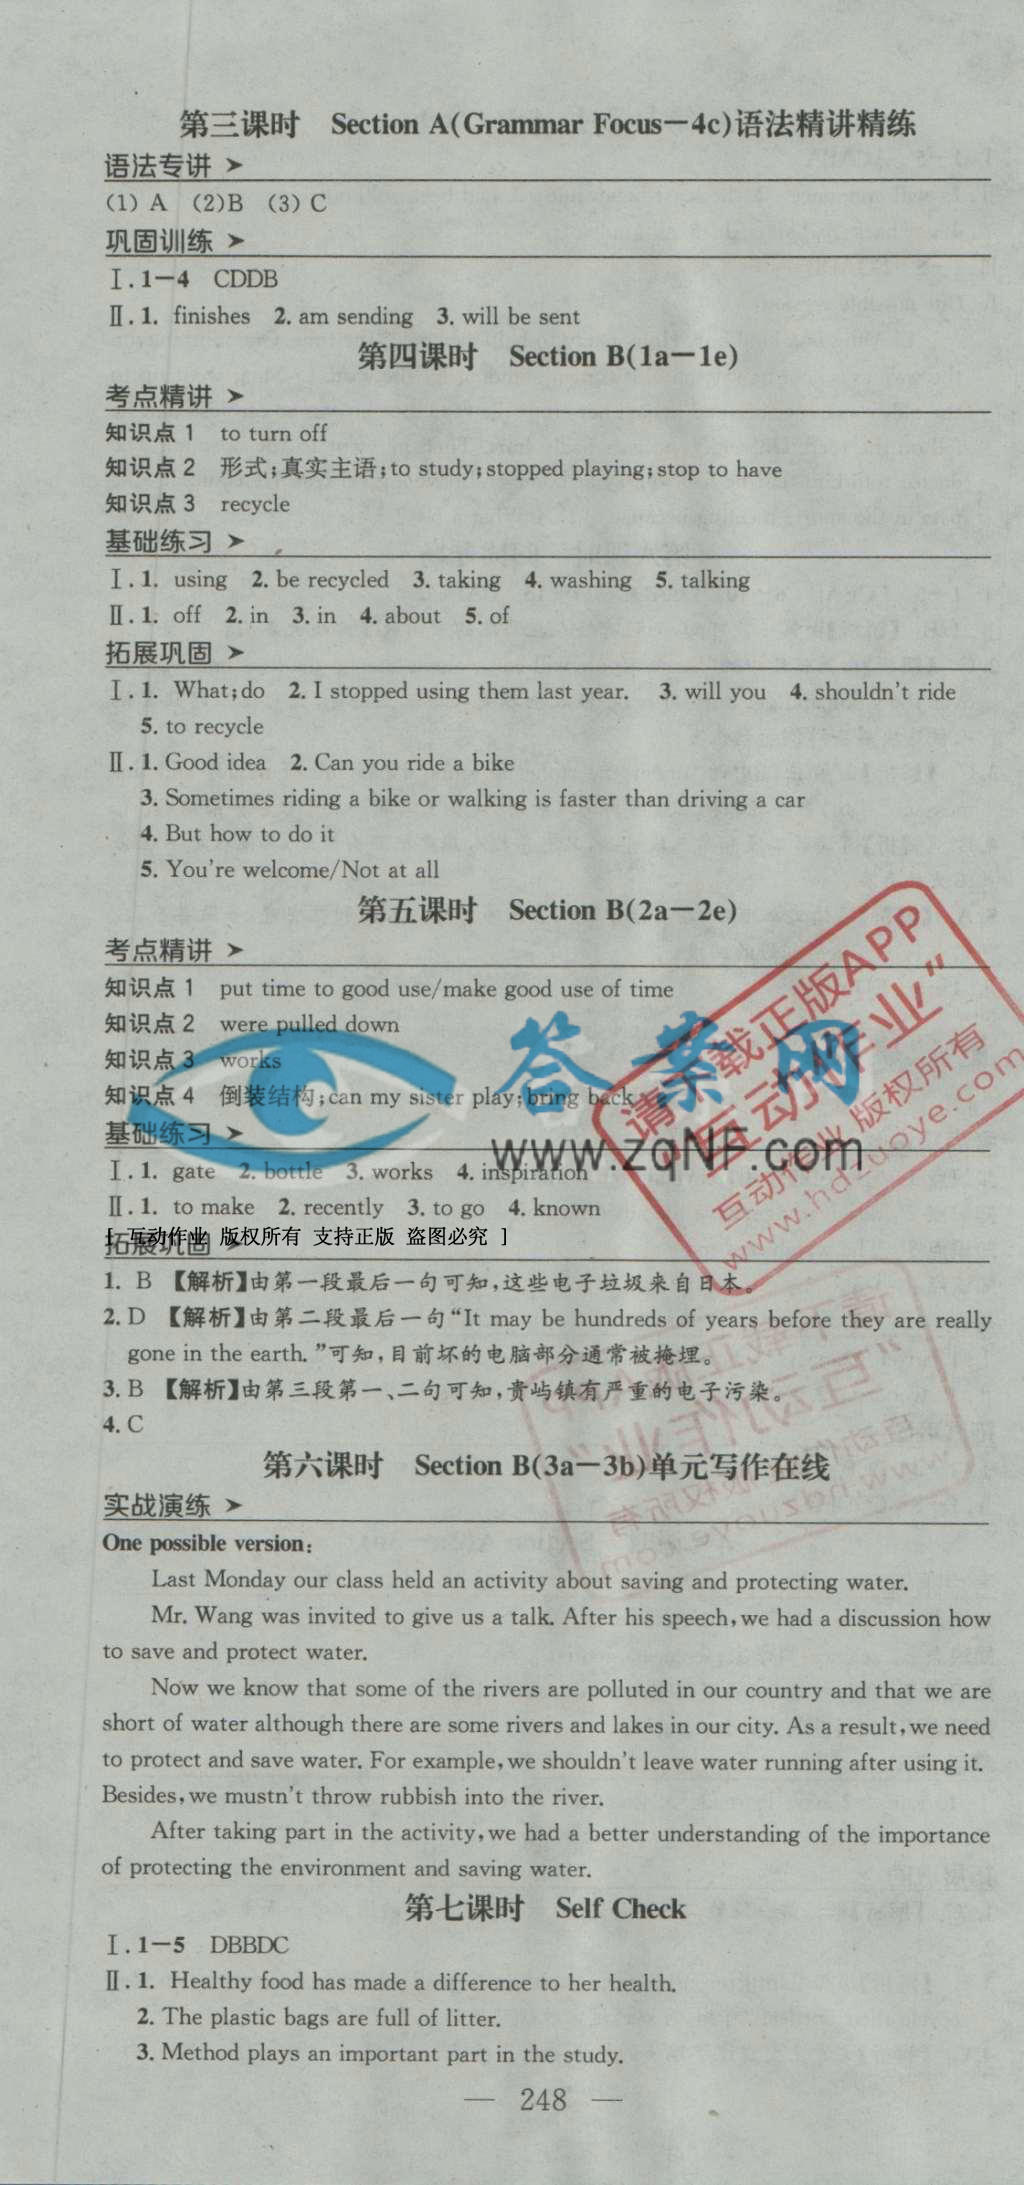 第三课时 Section A(Grammar Focus－4c)语法精讲精练
语法专讲 ➤
(1) A (2)B (3) C
巩固训练 ➤
Ⅰ. 1－4 CDDB
Ⅱ. 1. finishes 2. am sending 3. will be sent
第四课时 Section B(1a－1e)
考点精讲 ➤
知识点 1 to turn off
知识点 2 形式;真实主语;to study;stopped playing;stop to have
知识点 3 recycle
基础练习 ➤
Ⅰ. 1. using 2. be recycled 3. taking 4. washing 5. talking
Ⅱ. 1. off 2. in 3. in 4. about 5. of
拓展巩固 ➤
Ⅰ. 1. What;do 2. I stopped using them last year. 3. will you 4. shouldn't ride
5. to recycle
Ⅱ. 1. Good idea 2. Can you ride a bike
3. Sometimes riding a bike or walking is faster than driving a car
4. But how to do it
5. You're welcome/Not at all
第五课时 Section B(2a－2e)
考点精讲 ➤
知识点 1 put time to good use/make good use of time
知识点 2 were pulled down
知识点 3 works
知识点 4 倒装结构;can my sister play;bring back
基础练习 ➤
Ⅰ. 1. gate 2. bottle 3. works 4. inspiration
Ⅱ. 1. to make 2. recently 3. to go 4. known
[ 互动作业 版权所有 支持正版 盗图必究 ]
拓展巩固 ➤
1. B 【解析】由第一段最后一句可知,这些电子垃圾来自日本。
2. D 【解析】由第二段最后一句“It may be hundreds of years before they are really
gone in the earth.”可知,目前坏的电脑部分通常被掩埋。
3. B 【解析】由第三段第一、二句可知,贵屿镇有严重的电子污染。
4. C
第六课时 Section B(3a－3b)单元写作在线
实战演练 ➤
One possible version:
Last Monday our class held an activity about saving and protecting water.
Mr. Wang was invited to give us a talk. After his speech,we had a discussion how
to save and protect water.
Now we know that some of the rivers are polluted in our country and that we are
short of water although there are some rivers and lakes in our city. As a result,we need
to protect and save water. For example,we shouldn't leave water running after using it.
Besides,we mustn't throw rubbish into the river.
After taking part in the activity,we had a better understanding of the importance
of protecting the environment and saving water.
第七课时 Self Check
Ⅰ. 1－5 DBBDC
Ⅱ. 1. Healthy food has made a difference to her health.
2. The plastic bags are full of litter.
3. Method plays an important part in the study.
— 248 —
答案网
www.zqNF.com
请下载正版APP
“互动作业”
互动作业 版权所有
www.hdzuoye.com